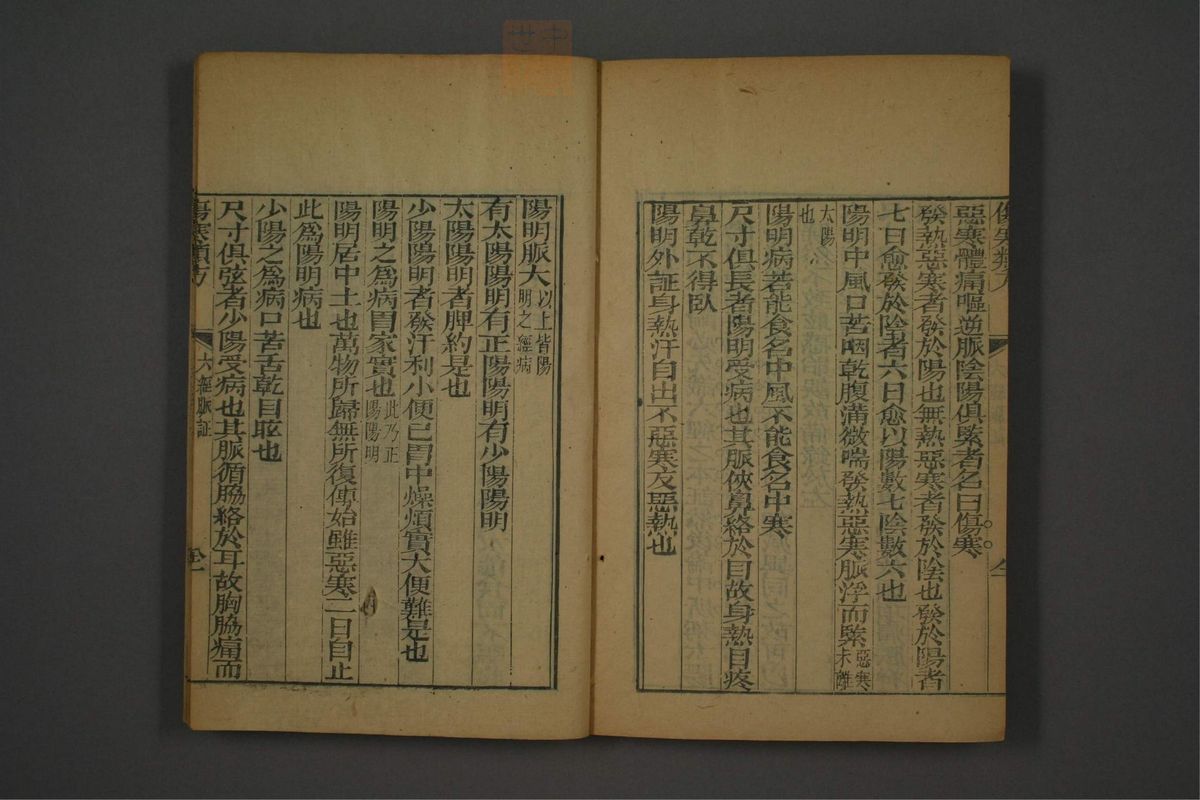 傷寒類方
惡寒體痛嘔逆脈陰陽俱緊者名曰傷寒
發熱惡寒者發於陽也無熱惡寒者發於陰也發於陽者
七日愈發於陰者六日愈以陽數七陰數六也
陽明中風口苦咽乾腹滿微喘發熱惡寒脈浮而緊惡寒未離
太陽也
陽明病若能食名中風不能食名中寒
尺寸俱長者陽明受病也其脈俠鼻絡於目故身熱目疼
鼻乾不得臥
陽明外証身熱汗自出不惡寒反惡熱也
陽明脈大以上皆陽明之經病
有太陽陽明有正陽陽明有少陽陽明
太陽陽明者脾約是也
少陽陽明者發汗利小便已胃中燥煩實大便難是也
陽明之為病胃家實也此乃正陽陽明
陽明居中土也萬物所歸無所復傳始雖惡寒二日自止
此爲陽明病也
少陽之為病口苦舌乾目眩也
尺寸俱弦者少陽受病也其脈循脇絡於耳故胸脇痛而
傷寒類方
六經脈証